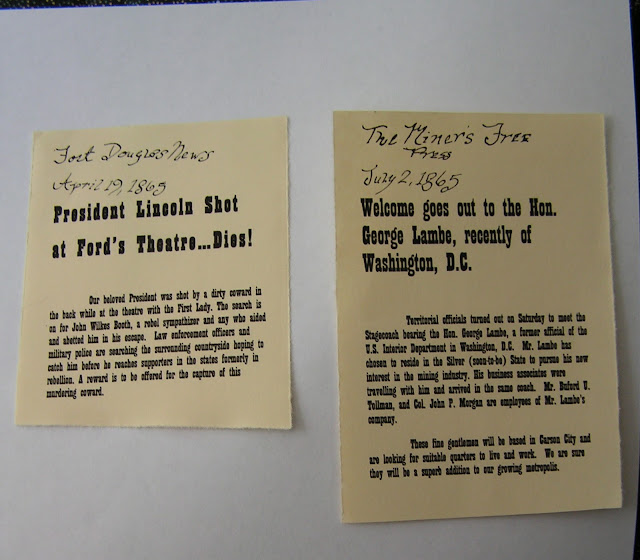 Fort Douglas News
April 19, 1865
President Lincoln Shot
at Ford's Theatre...Dies!
Our beloved President was shot by a dirty coward in
the back while at the theatre with the First Lady. The search is
on for John Wilkes Booth, a rebel sympathizer and any who aided
and abetted him in his escape. Law enforcement officers and
military police are searching the surrounding countryside hoping to
catch him before he reaches supporters in the states formerly in
rebellion. A reward is to be offered for the capture of this
murdering coward.
The Miner's Free
Press
July 2, 1865
Welcome goes out to the Hon.
George Lambe, recently of
Washington, D.C.
Territorial officials turned out on Saturday to meet the
Stagecoach bearing the Hon. George Lambe, a former official of the
U.S. Interior Department in Washington, D.C. Mr. Lambe has
chosen to reside in the Silver (soon-to-be) State to pursue his new
interest in the mining industry. His business associates were
travelling with him and arrived in the same coach. Mr. Buford U.
Tollman, and Col. John P. Morgan are employees of Mr. Lambe's
company.
These fine gentlemen will be based in Carson City and
are looking for suitable quarters to live and work. We are sure
they will be a superb addition to our growing metropolis.